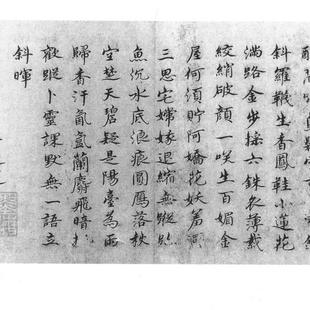 斜羅韈生香鳳鞋小蓮花
滿路金步搖六銖衣薄裁
絞綃破顏一咲生百媚金
屋何須貯阿嬌花妖着
三思宅嫦娥退縮無蹤跡
魚沉水底浪痕圓鴈落秋
空楚天碧疑是陽臺為雨
歸香汗氤氳蘭麝飛暗
歡蹤卜靈課默無一語立
斜暉